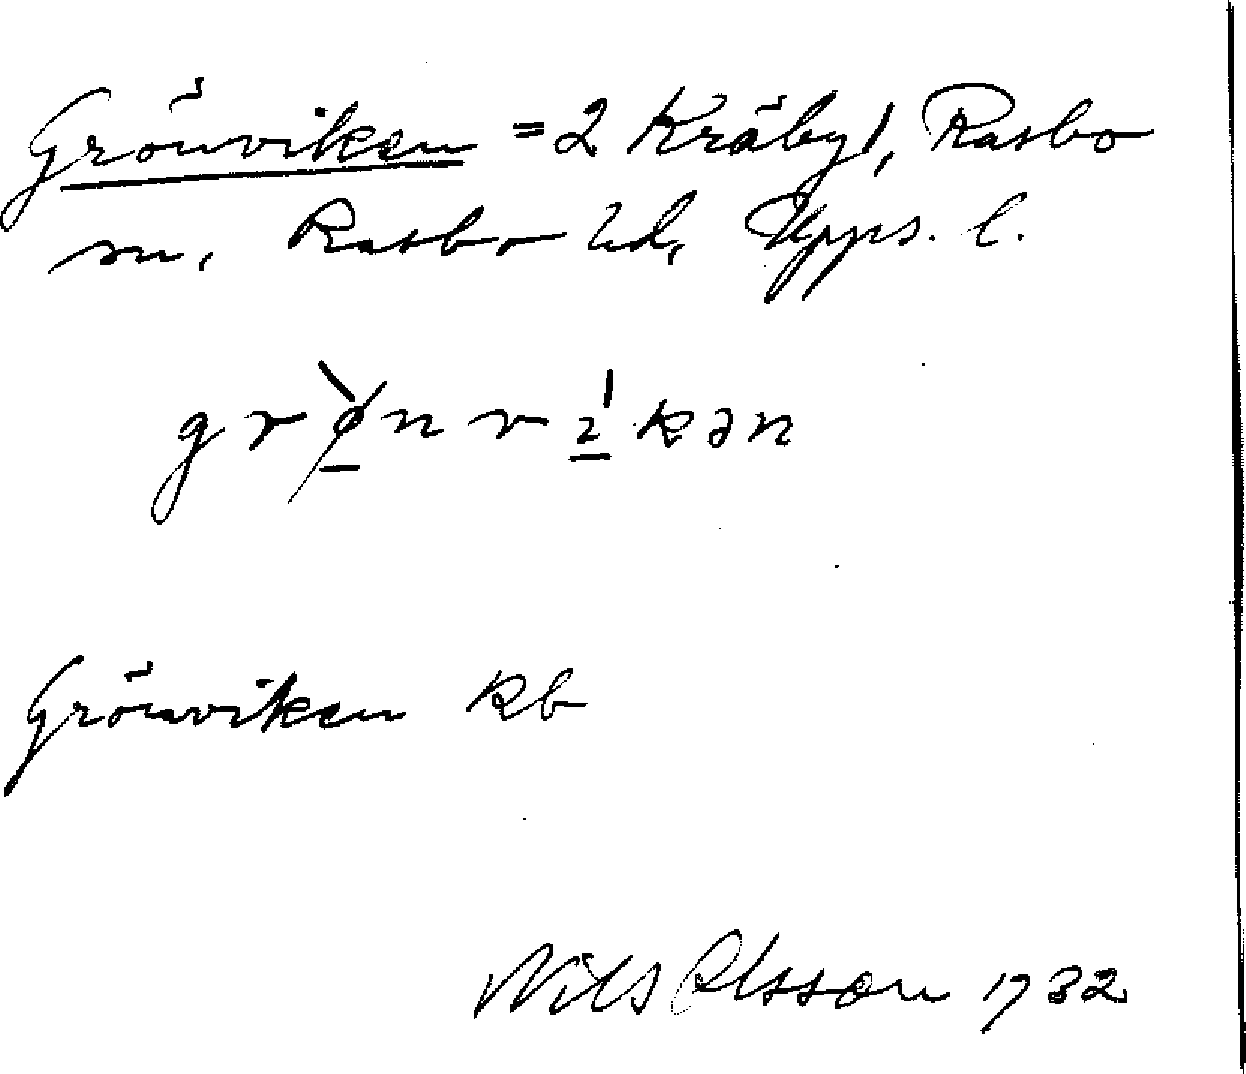 Grönviken = 2 Kräby 1, Rasbo
sn, Rasbo hd, Upps. l.
grø̀nvíkən
Grönviken kb
Nils Olsson 1932